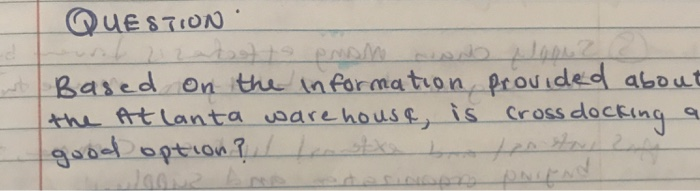 QUESTION
Based on the information provided about
the Atlanta warehouse, is crossdocking a
good option?